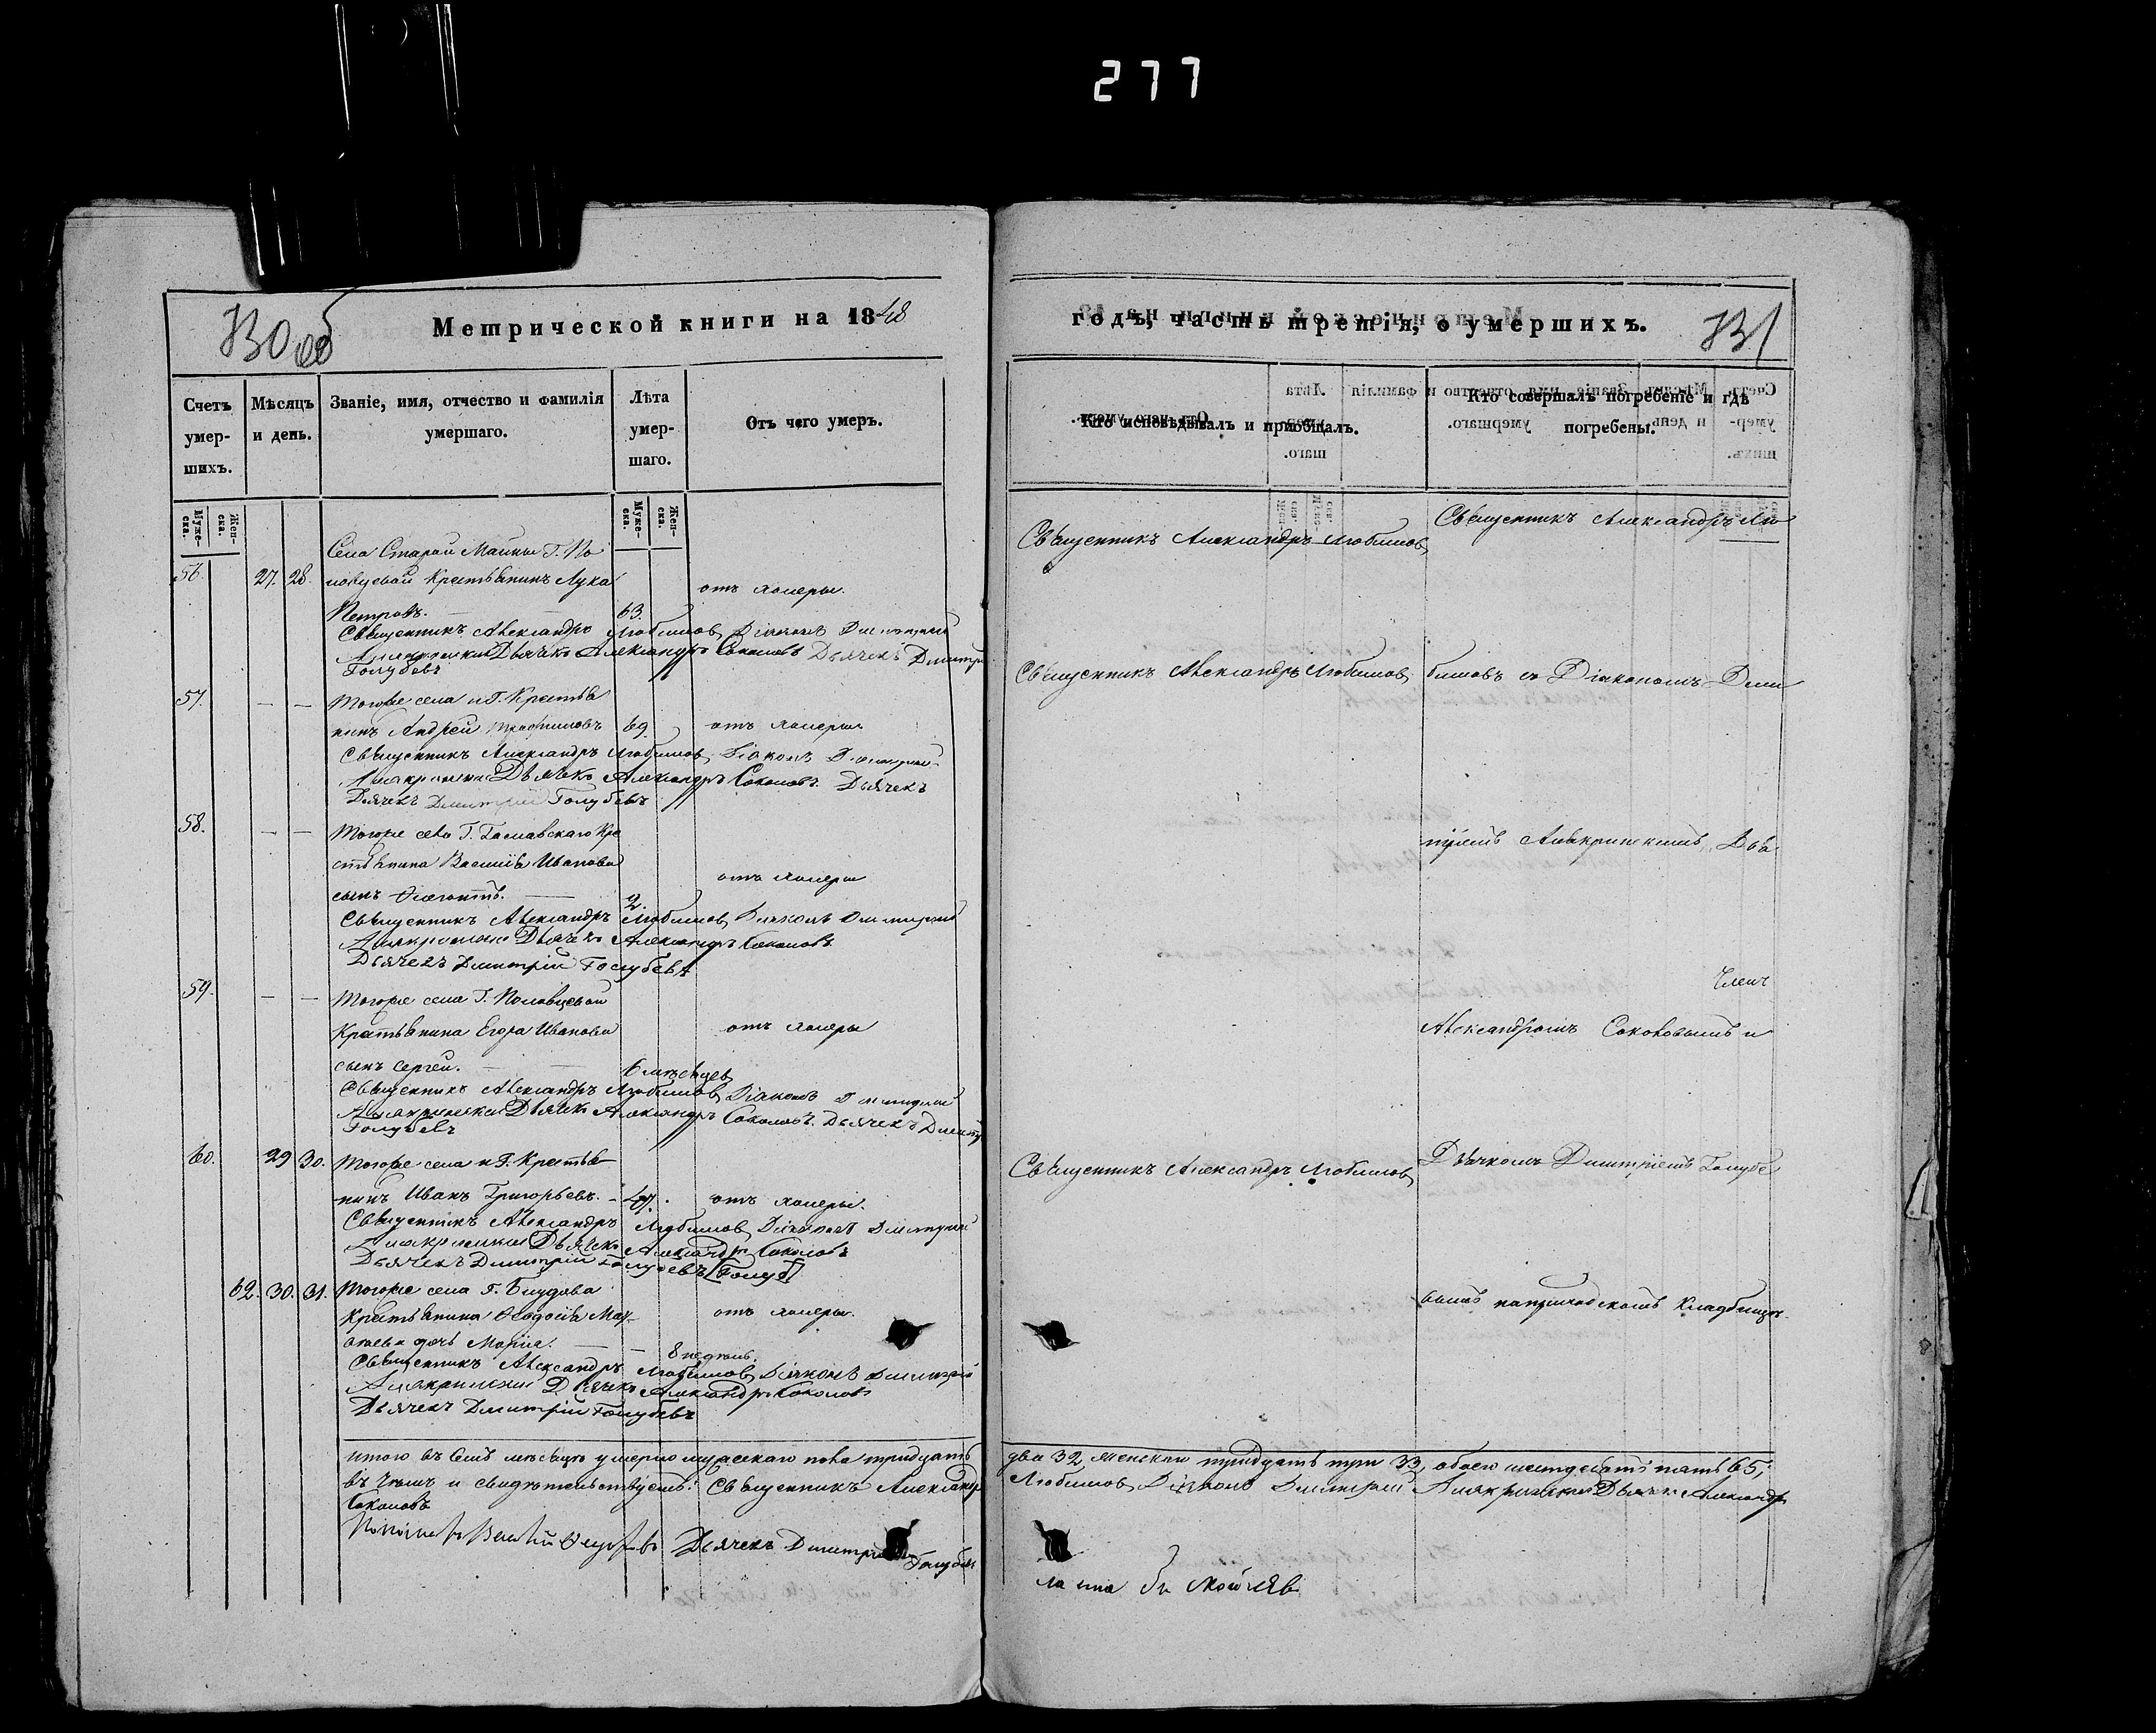 277
730 об
Метрической книги на 1848
Счетъ умер-шихъ.
Мѣсяцъ и день.
Званіе, имя, отчество и фамилія умершаго.
Лѣта умер-шаго.
Отъ чего умеръ.
Муже-ска.
Жен-ска.
Муже-ска.
Жен-ска.
Села Старой Майны Г. По
56. 27. 28. ловцевой Крестьянинъ Лука
отъ холеры.
Петровъ. 63.
Священникъ Александръ Любимовъ Діаконъ Димитрій
Дьячекъ Александръ Соколовъ Дьячекъ Дмитрі
Голубевъ
57. — — Тогоже села и Г. Крестья
нинъ Андрей Трофимовъ 69. отъ холеры.
Священникъ Александръ Любимовъ Діаконъ Димитрій
Дьячекъ Александръ Соколовъ. Дьячекъ
Дьячекъ Дмитрій Голубевъ
58. — — Тогоже села Г. Кре
стьянина Василія Иванова
отъ холеры
сынъ 2.
Священникъ Александръ Любимовъ Діаконъ Димитрій
Дьячекъ Александръ Соколовъ
Дьячекъ Дмитрій Голубевъ
59. — — Тогоже села Г. Половцевой
Крестьянина Егора Иванова отъ холеры
сынъ Сергей. 6 мѣсяцев
Священникъ Александръ Любимовъ Діаконъ Димитрій
Дьячекъ Александръ Соколовъ. Дьячекъ Дмитр
Голубевъ
60. 29 30. Тогоже села и Г. Крестья
нинъ Иванъ Григорьевъ. 47. отъ холеры.
Священникъ Александръ Любимовъ Діаконъ Димитрій
Дьячекъ Александръ Соколовъ
Дьячекъ Димитрій Голубевъ [Голуб]
62. 30. 31. Тогоже села Г. Блудова
Крестьянина Ѳеодосія
отъ холеры.
дочь Марія. 8 недѣль.
Священникъ Александръ Любимовъ Діаконъ Димитрій
Дьячекъ Александръ Соколовъ
Дьячекъ Дмитрій Голубевъ
итого въ семъ мѣсяцѣ умерло мужескаго пола тридцать
въ чемъ и свидѣтельствуемъ: Священникъ Александр
Соколовъ
Дьячекъ Димитрій
Голубевъ
годъ, часть третія, о умершихъ.
731
Кто исповѣдывалъ и пріобщалъ.
Кто совершалъ погребеніе и гдѣ погребены.
Священникъ Александръ Любимовъ
Священникъ Александръ Лю
Священникъ Александръ Любимовъ
бимовъ съ Діакономъ Дими
тріемъ Амакринскимъ, Дья
чкомъ
Александромъ Соколовымъ и
Священникъ Александръ Любимовъ
Дьячкомъ Димитріемъ Голубе
вымъ на приходскомъ кладбищѣ.
два 32, женскаго тридцать три 33, обоего шестдесятъ пять 65;
Любимовъ Діаконъ Димитрій Дьячекъ Александръ